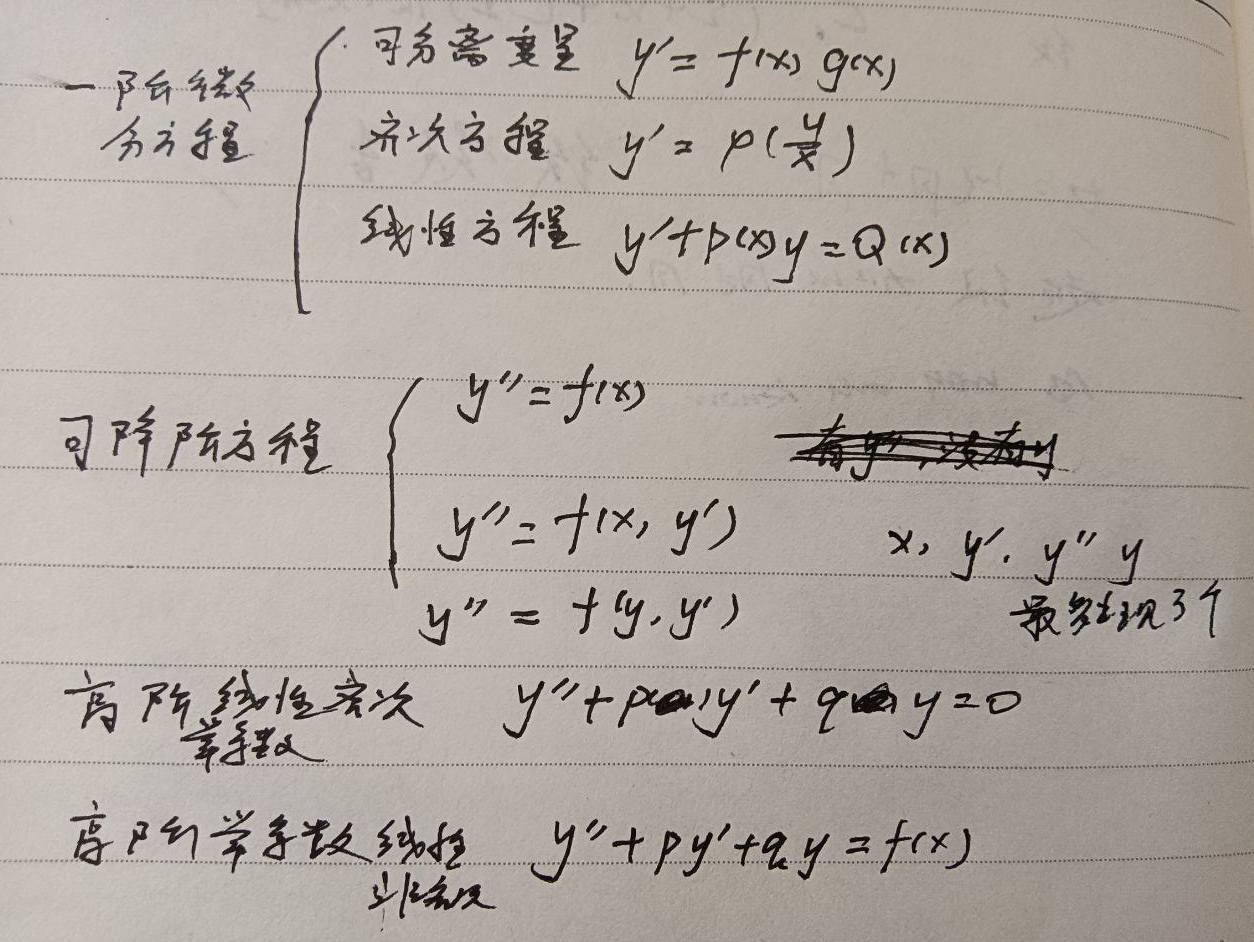 一阶微分方程
可分离变量 y' = f(x) g(x)
齐次方程 y' = φ(y/x)
线性方程 y' + p(x)y = Q(x)
可降阶方程
y'' = f(x)
y'' = f(x, y')
y'' = f(y, y')
x, y', y'' y
最多出现3个
高阶线性齐次 y'' + py' + qy = 0
常系数
高阶常系数线性 y'' + py' + qy = f(x)
非齐次